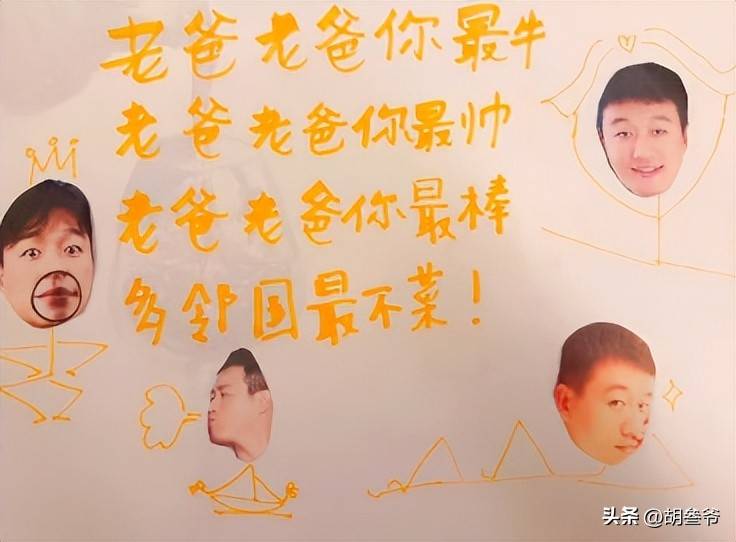 老爸老爸你最牛
老爸老爸你最帅
老爸老爸你最棒
多邻国最不菜！
头条 @胡叁爷